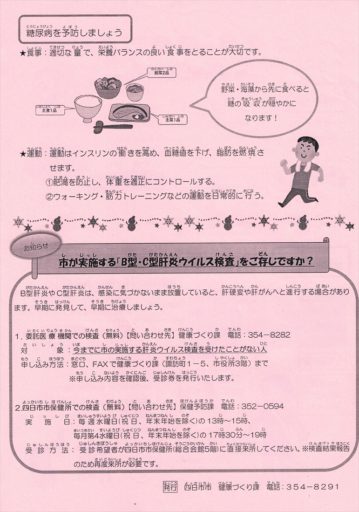 糖尿病を予防しましょう
★食事：適切な量で、栄養バランスの良い食事をとることが大切です。
副菜2品
主食1品
主菜1品
野菜・海藻から先に食べると
糖の吸収が穏やかに
なります！
★運動：運動はインスリンの働きを高め、血糖値を下げ、脂肪を燃焼さ
せます。
①肥満を防止し、体重を適正にコントロールする。
②ウォーキング・筋力トレーニングなどの運動を日常的に行う。
お知らせ
市が実施する「B型・C型肝炎ウイルス検査」をご存じですか？
B型肝炎やC型肝炎は、感染に気づかないまま放置していると、肝硬変や肝がんへと進行する場合があり
ます。早期に発見して、早期に治療しましょう。
1．委託医療機関での検査（無料）【問い合わせ先】健康づくり課　電話：354-8282
対　　象：今までに市の実施する肝炎ウイルス検査を受けたことがない人
申し込み方法：窓口、FAXで健康づくり課（諏訪町1－5、市役所3階）まで
※申し込み内容を確認後、受診券を発行いたします。
2．四日市市保健所での検査（無料）【問い合わせ先】保健予防課　電話：352-0594
実　施　日：毎週水曜日（祝日、年末年始を除く）の13時～15時
毎月第4水曜日（祝日、年末年始を除く）の17時30分～19時
受診方法：受診希望者が四日市市保健所（総合会館5階）に直接来所してください。※検査結果報告
のため再度来所が必要です。
発行　四日市市　健康づくり課　電話：354-8291